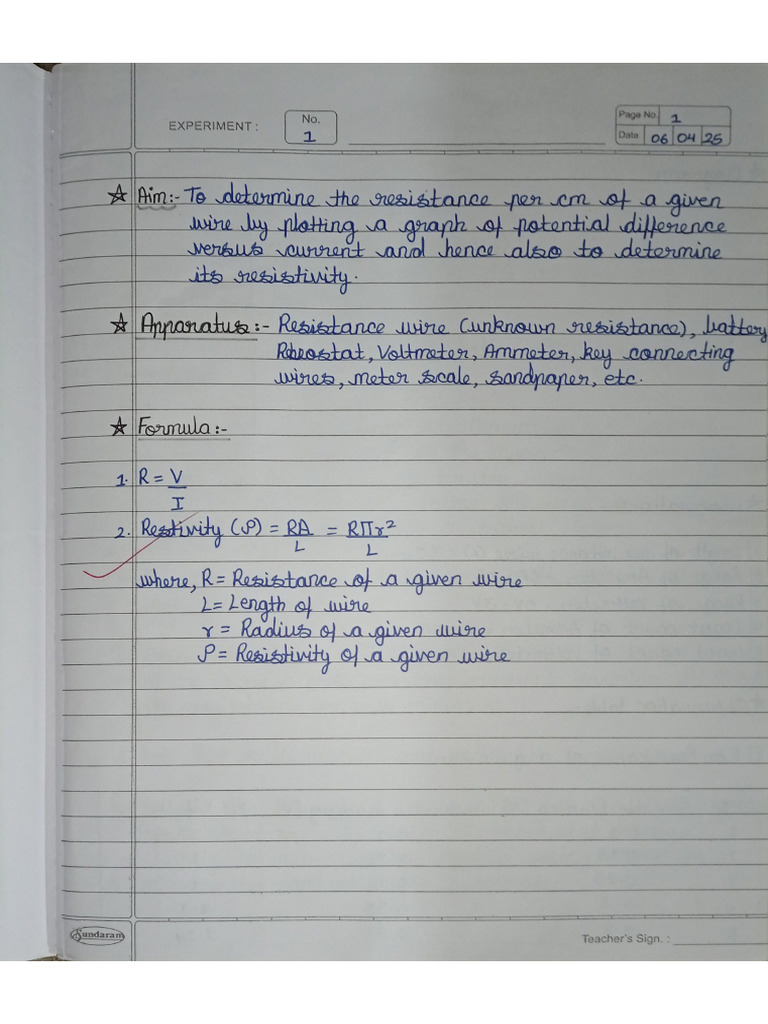 EXPERIMENT : No. 1
Page No. 1
Date 06 04 25
☆ Aim:- To determine the resistance per cm of a given
wire by plotting a graph of potential difference
versus current and hence also to determine
its resistivity.
☆ Apparatus:- Resistance wire (unknown resistance), battery
Rheostat, Voltmeter, Ammeter, key connecting
wires, meter scale, sandpaper, etc.
☆ Formula:-
1. R = V/I
2. Restivity (ρ) = RA/L = Rπr²/L
where, R = Resistance of a given wire
L = Length of wire
r = Radius of a given wire
ρ = Resistivity of a given wire
Sundaram
Teacher's Sign. :